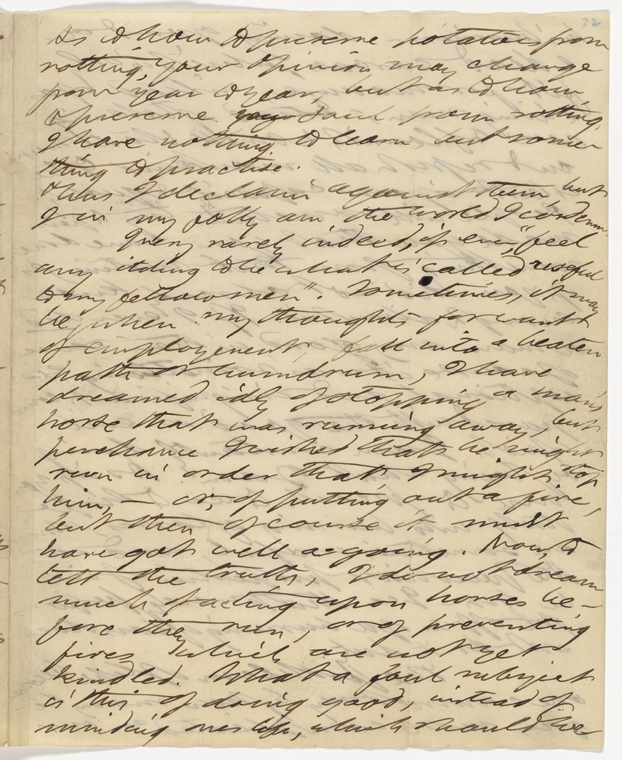 32
As to how to preserve potatoes from
rotting, your opinion may change
from year to year, but as to how
to preserve your soul from rotting,
I have nothing to learn but some-
thing to practise.
Thus I declaim against them but
I in my folly am the world I condemn.
I very rarely indeed, if ever, "feel
any itching to be what is called useful
to my fellowmen". Sometimes, it may
be when my thoughts for want
of employment, fall into a beaten
path or humdrum, I have
dreamed idly of stopping a man's
horse that was running away, but
perchance I wished that he might
run in order that I might stop
him, – or, of putting out a fire,
but then of course it must
have got well a-going. Now, to
tell the truth, I do not dream
much of acting upon horses be-
fore they run, or of preventing
fires which are not yet
kindled. What a foul subject
is this of doing good, instead of
minding ones life, which should be